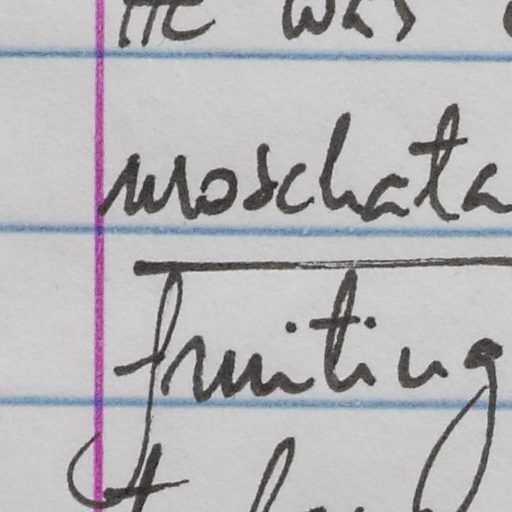 He was
moschata
fruiting